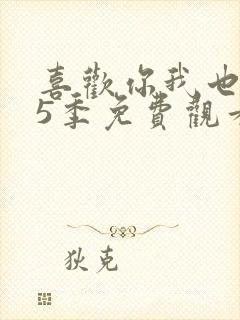 喜歡你我也
5季免費觀
狄克